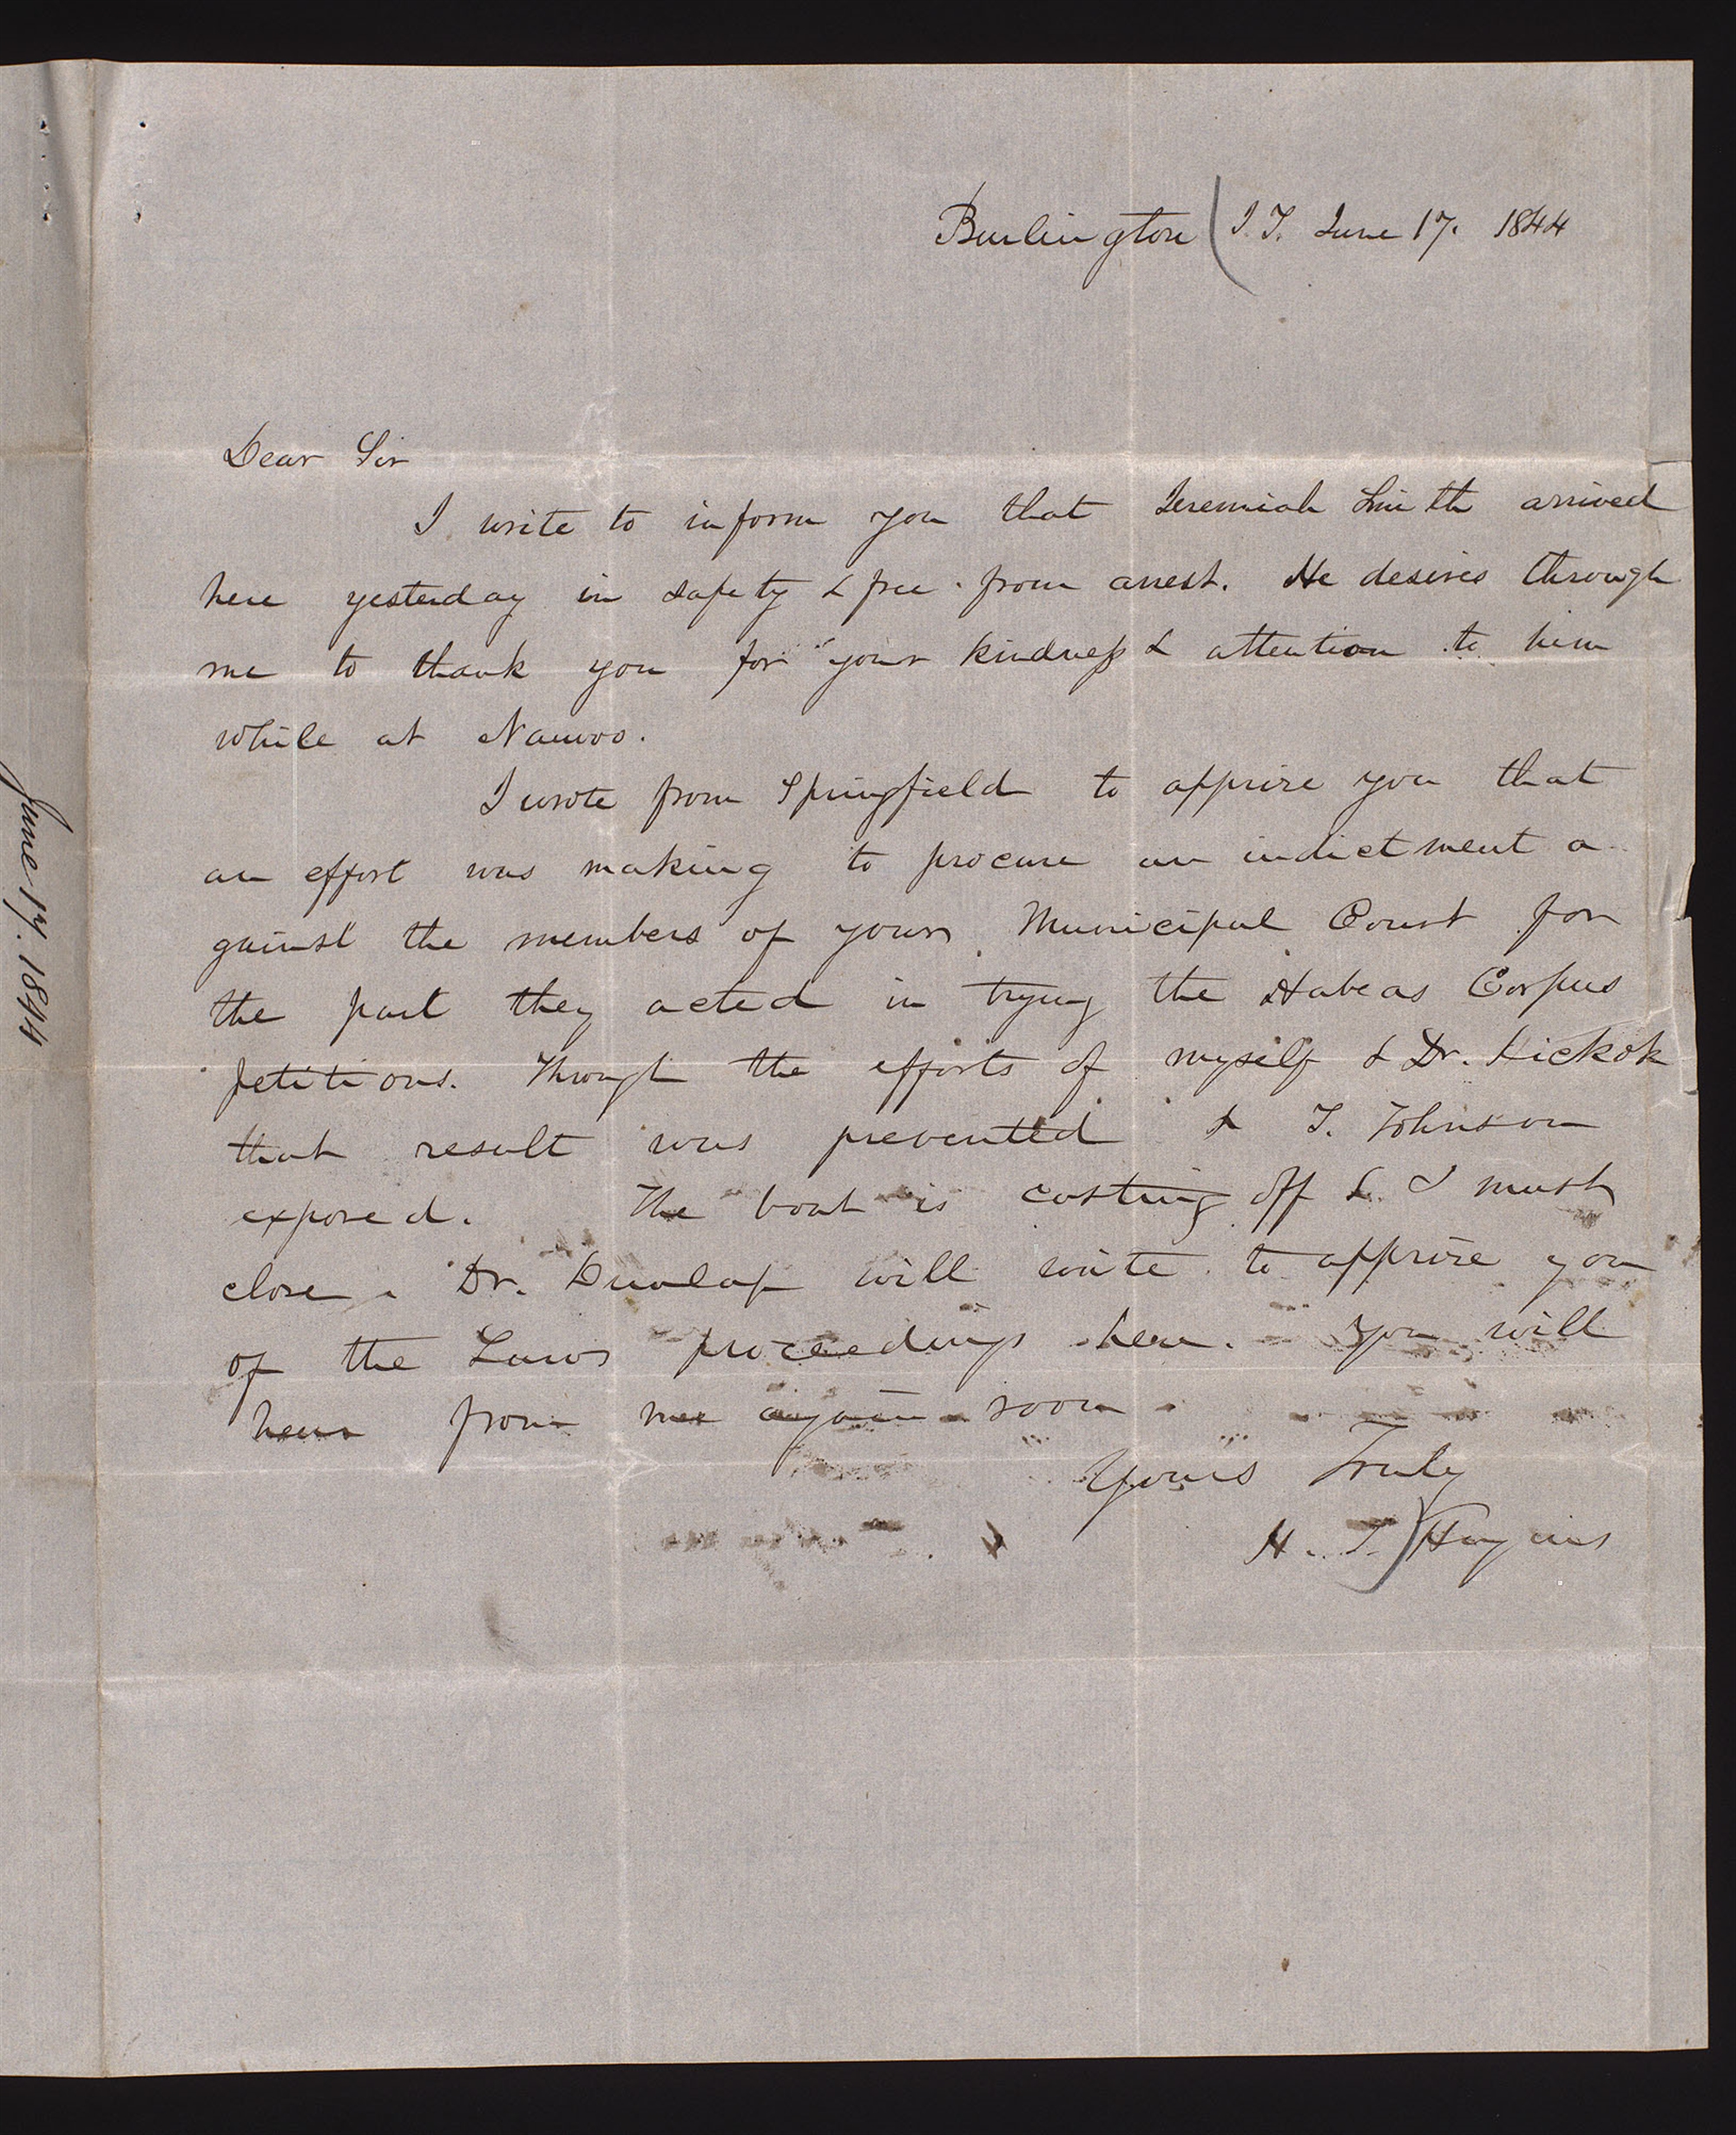 Burlington I.T. June 17. 1844
Dear Sir
I write to inform you that Jeremiah Smith arrived
here yesterday in safety & free from arrest. He desires through
me to thank you for your kindness & attention to him
while at Nauvoo.
I wrote from Springfield to apprize you that
an effort was making to procure an indictment a
gainst the members of your Municipal Court for
the part they acted in trying the Habeas Corpus
petitions. Through the efforts of myself & Dr. Hickok
that result was prevented & T. Johnson
exposed. The boat is casting off & I must
close. Dr. Dunlap will write to apprize you
of the Laws proceedings here. You will
hear from me again soon
Yours Truly
H. T. Hugins
June 17. 1844